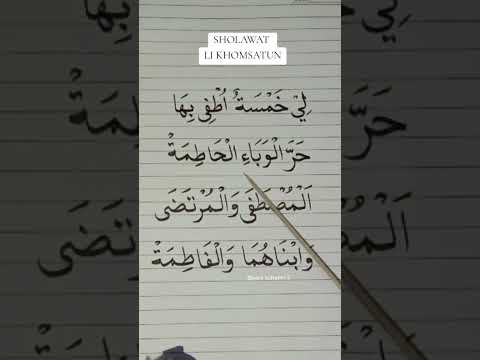 SHOLAWAT
LI KHOMSATUN
لِيْ خَمْسَةٌ اُطْفِى بِهَا
حَرَّ الْوَبَاءِ الْحَاطِمَةْ
اَلْمُصْطَفَى وَالْمُرْتَضَى
وَابْنَاهُمَا وَالْفَاطِمَةْ